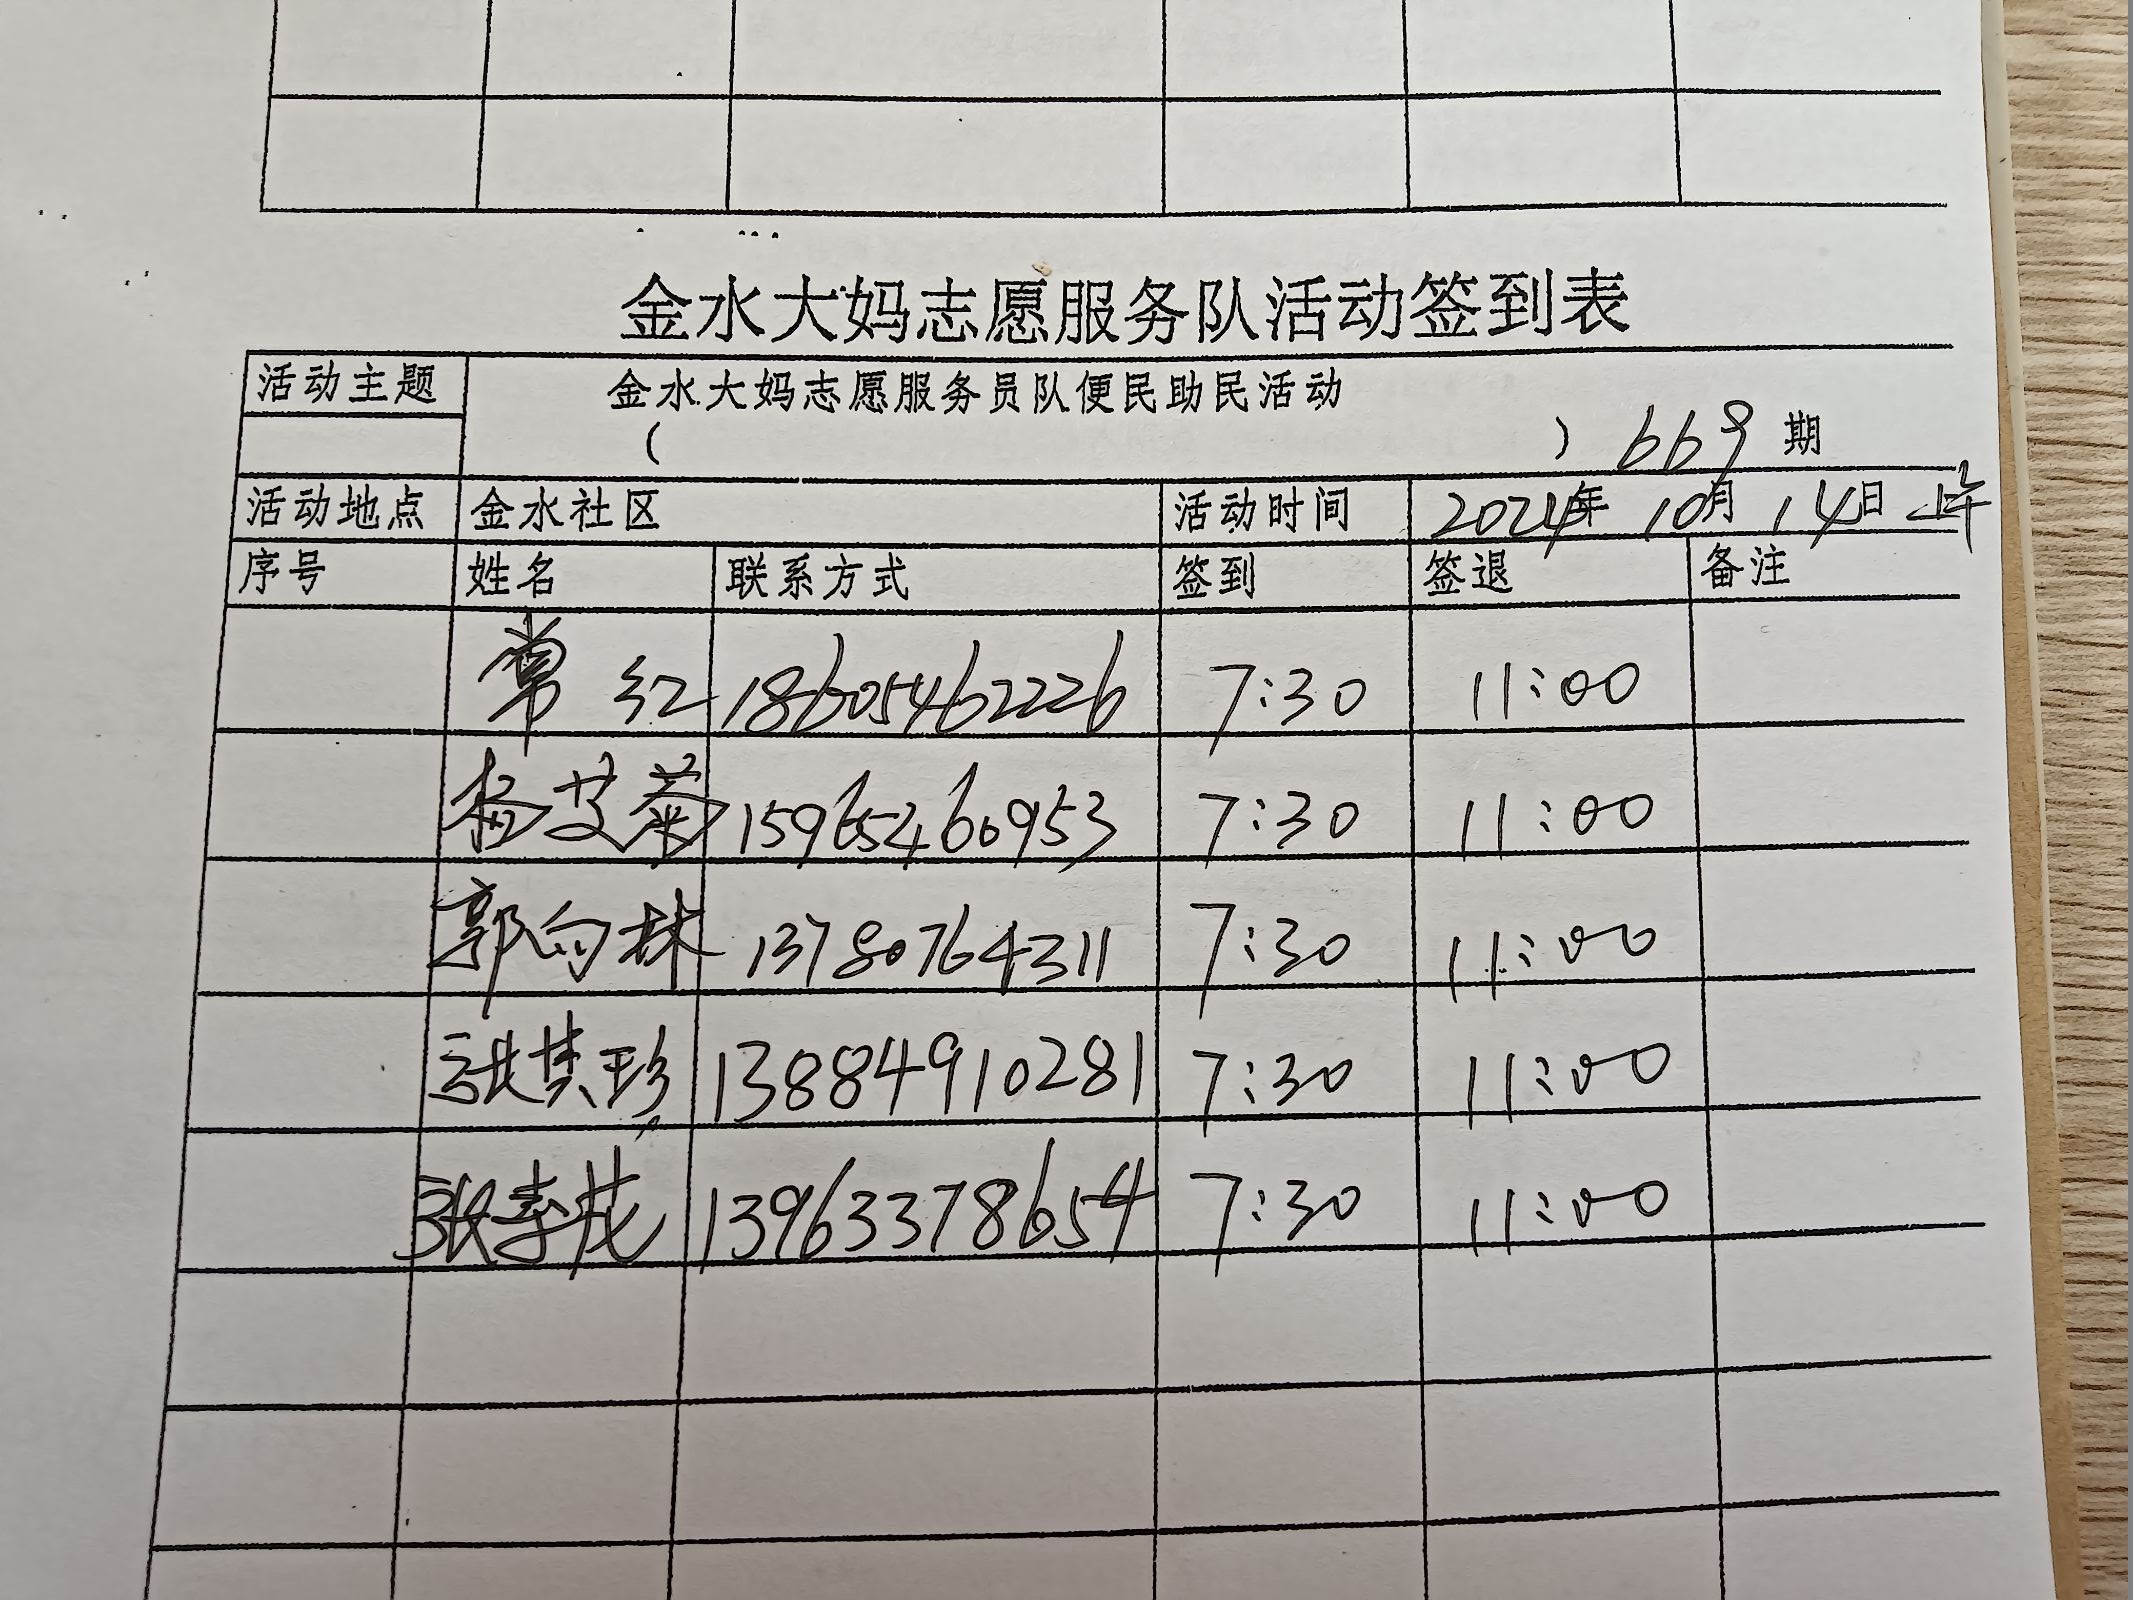 金水大妈志愿服务队活动签到表
活动主题 金水大妈志愿服务员队便民助民活动
( ) 669 期
活动地点 金水社区 活动时间 2024年 10月 14日 上午
序号 姓名 联系方式 签到 签退 备注
常红 18605462226 7:30 11:00
杨艾菊 15965460953 7:30 11:00
郭向林 13780764311 7:30 11:00
张其珍 13884910281 7:30 11:00
张春花 13963378654 7:30 11:00